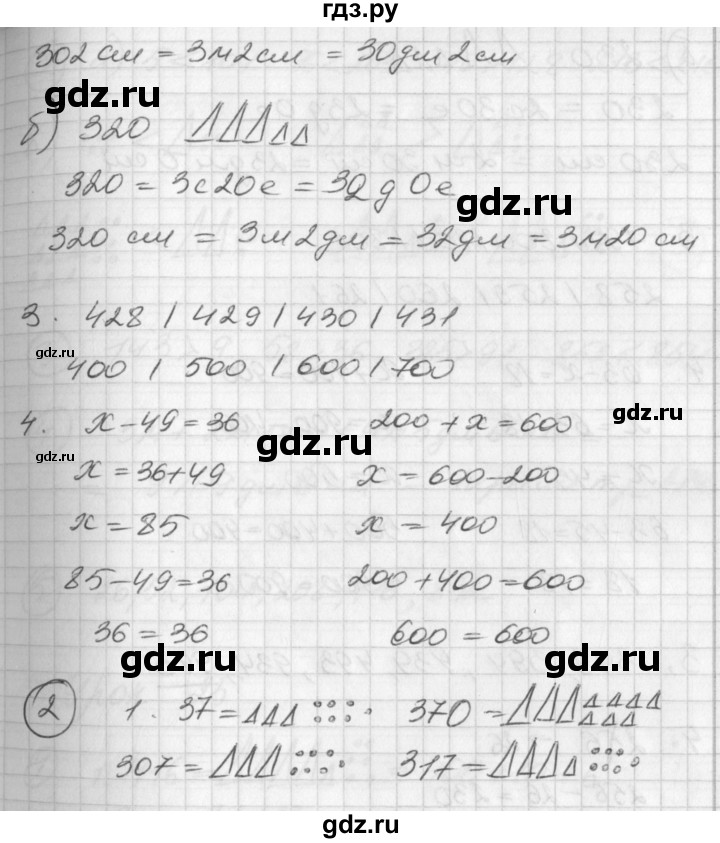 гдз.ру
302 см = 3м2см = 30дм 2см
б) 320
320 = 3с20е = 32д 0е
320 см = 3м2дм = 32дм = 3м20см
3. 428 / 429 / 430 / 431
400 / 500 / 600 / 700
4. x - 49 = 36 200 + x = 600
x = 36 + 49 x = 600 - 200
x = 85 x = 400
85 - 49 = 36 200 + 400 = 600
36 = 36 600 = 600
2 1. 37 = 370 =
307 = 317 =
gdz.ru
gdz.ru
gdz.ru
gdz.ru
gdz.ru
gdz.ru
gdz.ru
gdz.ru
gdz.ru
gdz.ru